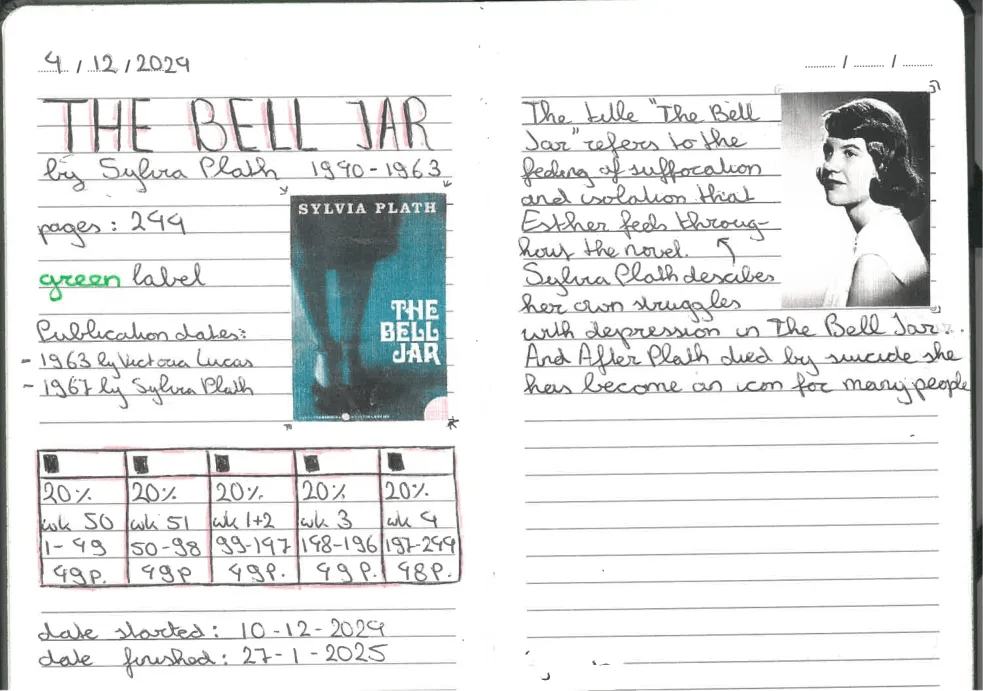 4 / 12 / 2024
THE BELL JAR
by Sylvia Plath 1940-1963
pages: 244
green label
Publication dates:
- 1963 by Victoria Lucas
- 1967 by Sylvia Plath
SYLVIA PLATH
THE
BELL
JAR
20% 20% 20% 20% 20%
wk 50 wk 51 wk 1+2 wk 3 wk 4
1-49 50-98 99-147 148-196 197-244
49p. 49p 49p. 49p. 48p.
date started: 10-12-2024
date finished: 27-1-2025
/ /
The title "The Bell
Jar" refers to the
feeling of suffocation
and isolation that
Esther feels throug-
hout the novel.
Sylvia Plath descibes
her own struggles
with depression in The Bell Jar.
And After Plath died by suicide she
has become an icon for many people